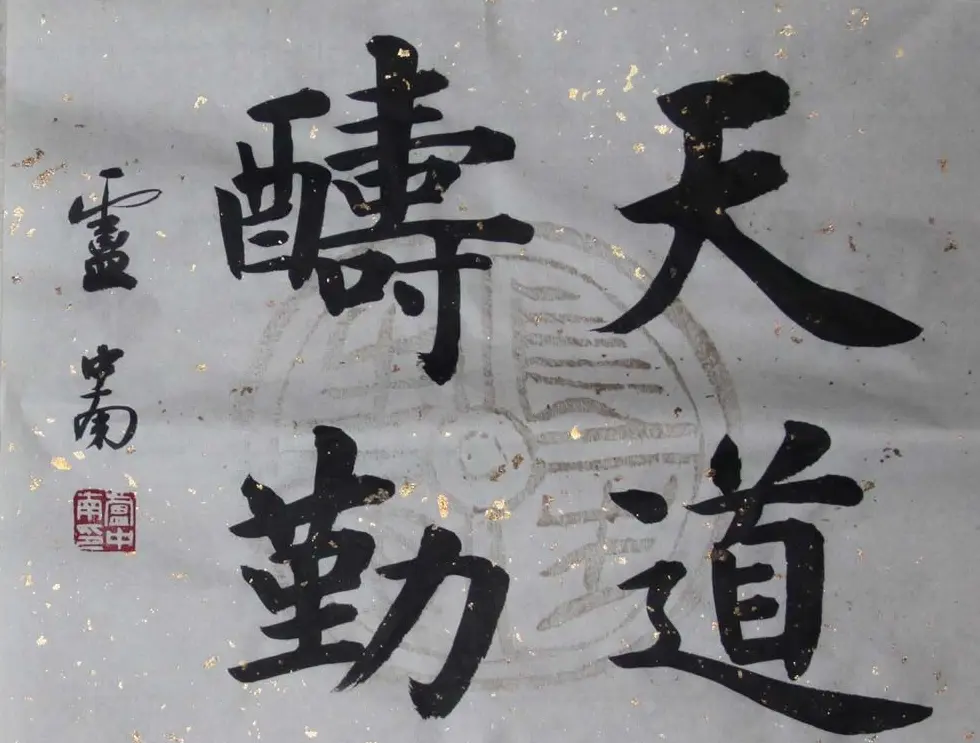 天道
醻勤
盧中南
盧中南印